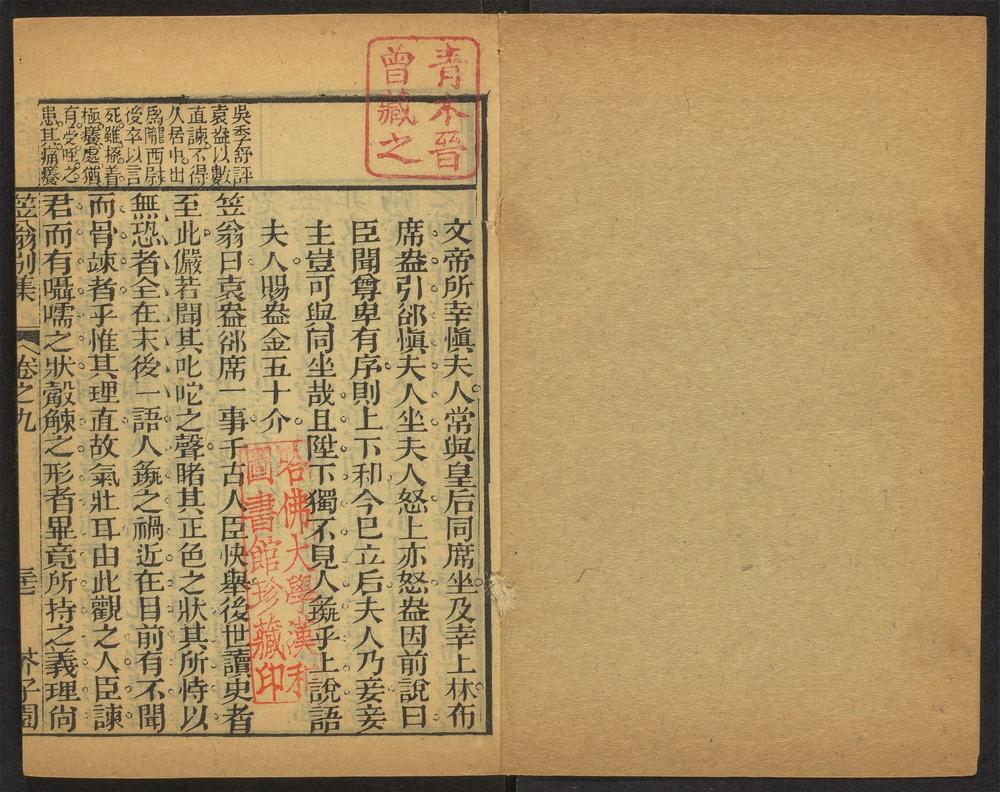 青木晉
曾藏之
吳季舒評
袁盎以數
直諫不得
久居中出
爲隴西尉
後卒以言
死雖搔着
極癢處猶
有受唑之
患其痛癢
文帝所幸愼夫人常與皇后同席坐及幸上林布
席盎引郤愼夫人坐夫人怒上亦怒盎因前說曰
臣聞尊卑有序則上下和今已立后夫人乃妾妾
主豈可與同坐哉且陛下獨不見人彘乎上說語
夫人賜盎金五十介
笠翁曰袁盎郤席一事千古人臣快舉後世讀史者
至此儼若聞其叱咜之聲睹其正色之狀其所恃以
無恐者全在末後一語人彘之禍近在目前有不聞
而骨竦者乎惟其理直故氣壯耳由此觀之人臣諫
君而有囁嚅之狀觳觫之形者畢竟所持之義理尙
笠翁別集 卷之九 三 芥子園
哈佛大學漢和
圖書館珍藏印